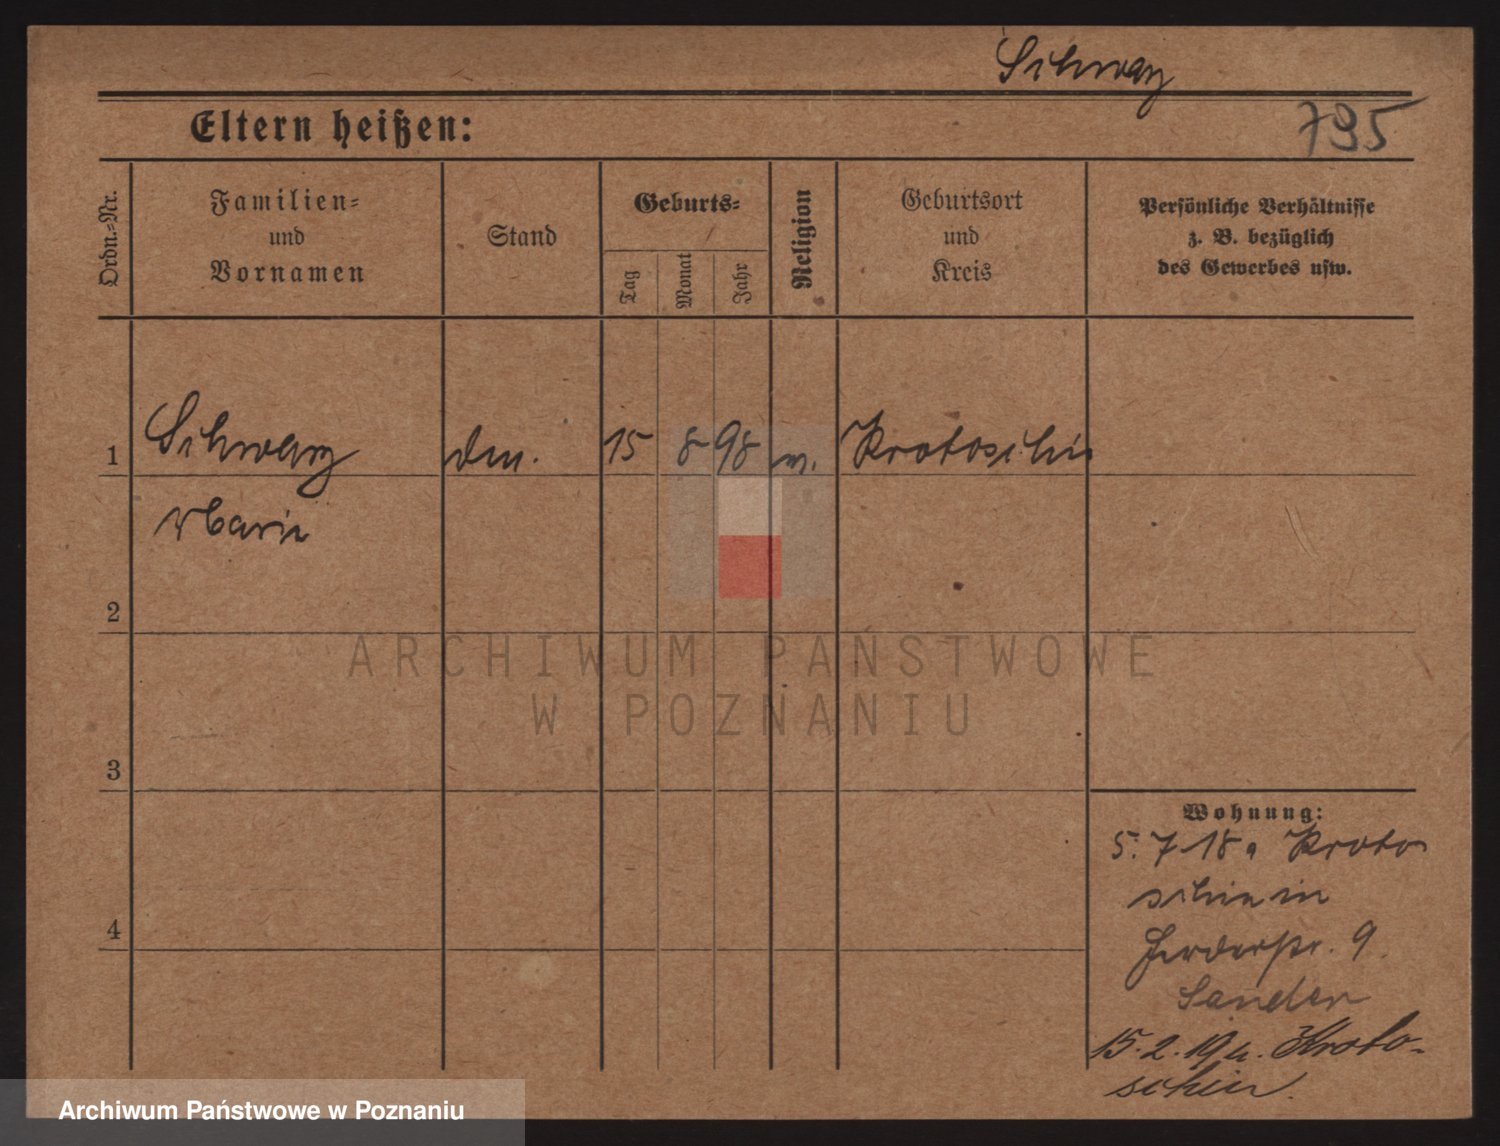 Schwarz
Eltern heißen:
795
Ordn.-Nr.
Familien-
und
Vornamen
Stand
Geburts-
Tag
Monat
Jahr
Religion
Geburtsort
und
Kreis
Persönliche Verhältnisse
z. B. bezüglich
des Gewerbes usw.
1
Schwarz
15
8
98
Krotoschin
Marie
2
ARCHIWUM PAŃSTWOWE
W POZNANIU
3
Wohnung:
5. 7 18 Kroto
schin in
4
9.
Sander
15. 2. 19 Kroto-
schin.
Archiwum Państwowe w Poznaniu